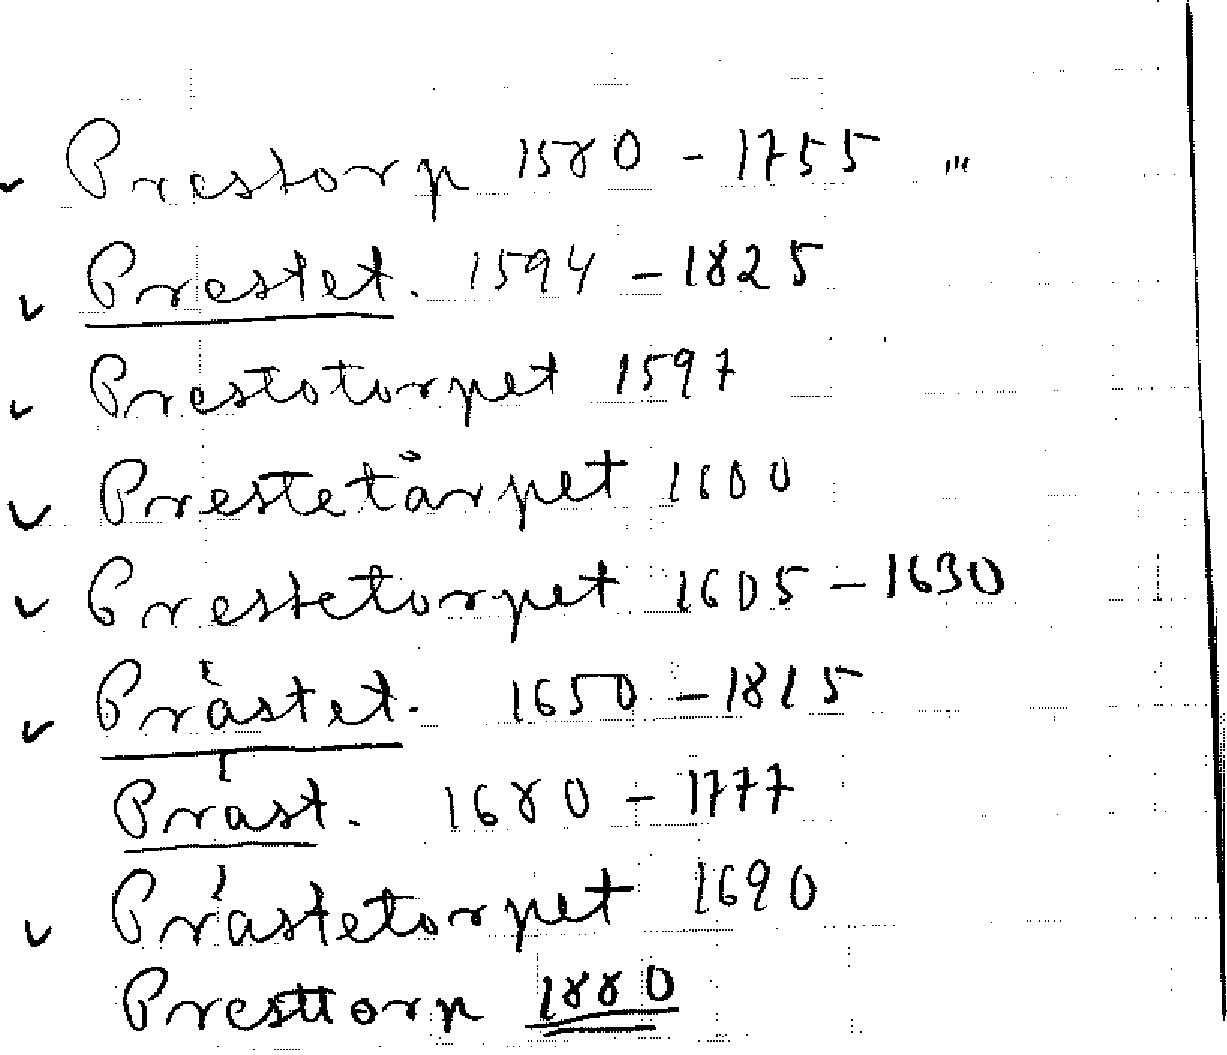 ✓ Prestorp 1580 - 1755 "'
✓ Prestet. 1594 - 1825
✓ Prestotorpet 1597
✓ Prestetårpet 1600
✓ Prestetorpet 1605 - 1630
✓ Prästet. 1650 - 1815
Präst. 1680 - 1777
✓ Prästetorpet 1690
Presttorp 1880